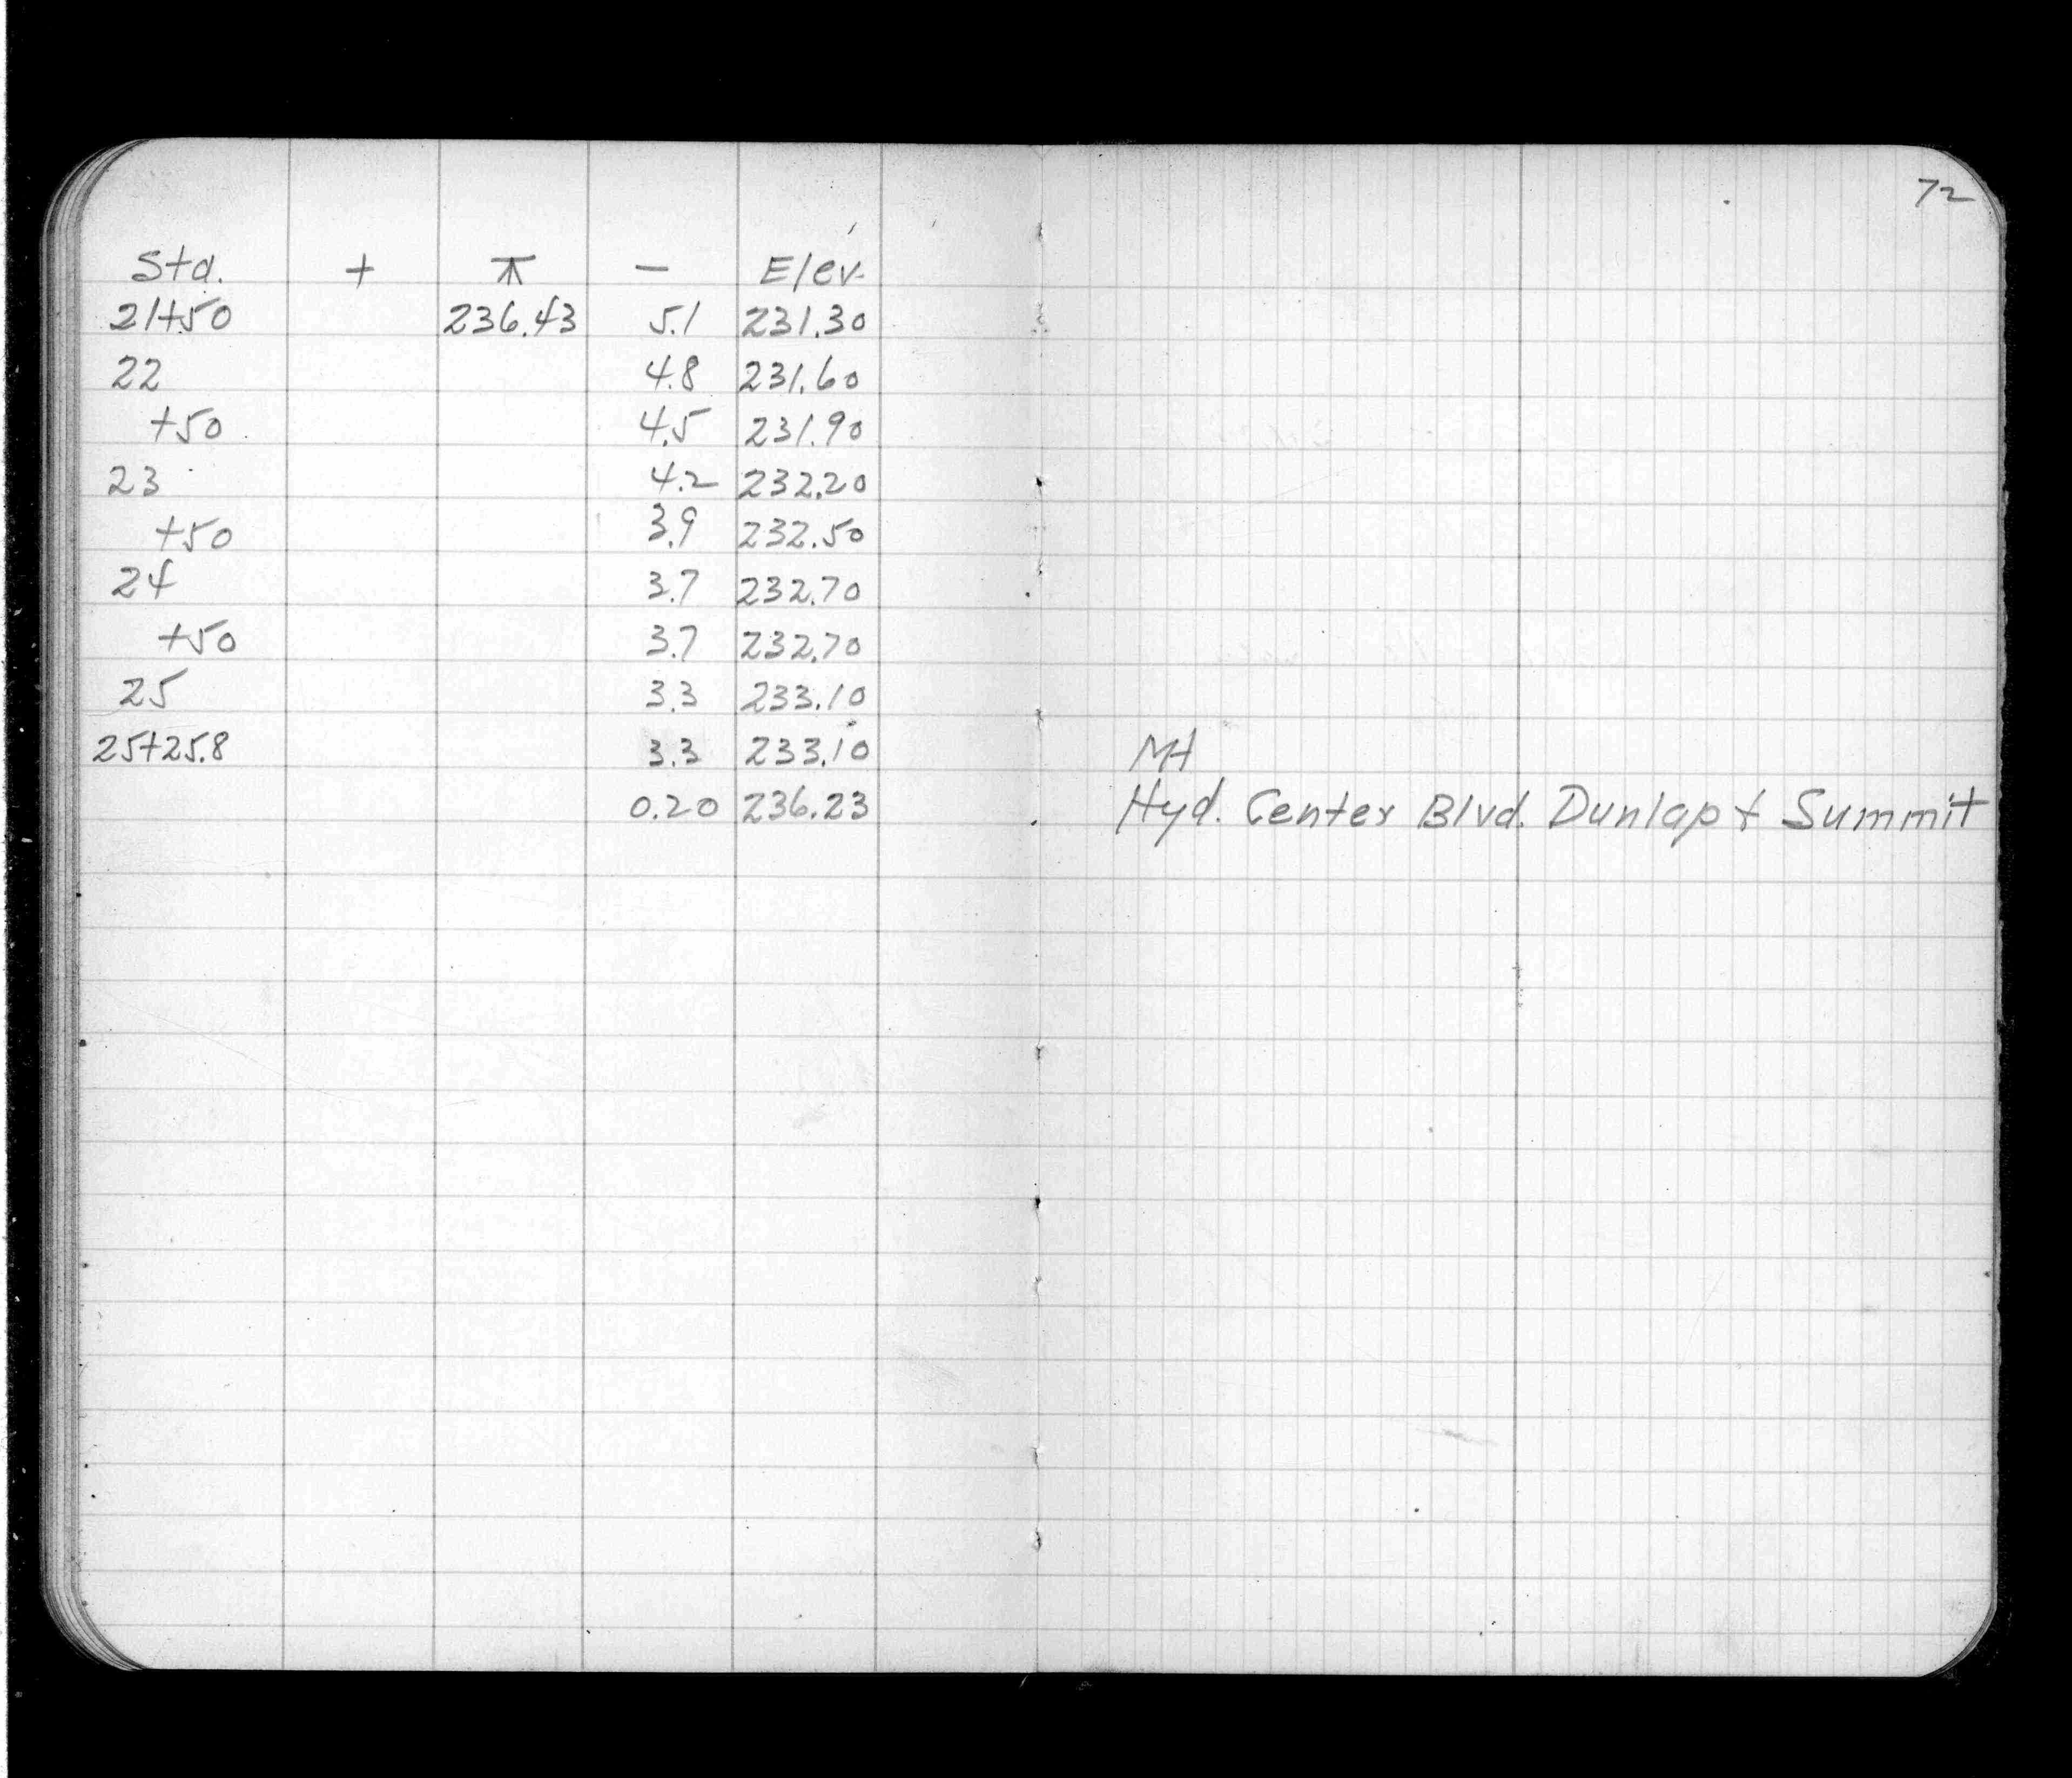 72
Sta. + ⊼ - Elev.
21+50 236.43 5.1 231.30
22 4.8 231.60
+50 4.5 231.90
23 4.2 232.20
+50 3.9 232.50
24 3.7 232.70
+50 3.7 232.70
25 3.3 233.10
25+25.8 3.3 233.10 MH
0.20 236.23 Hyd. Center Blvd. Dunlap & Summit